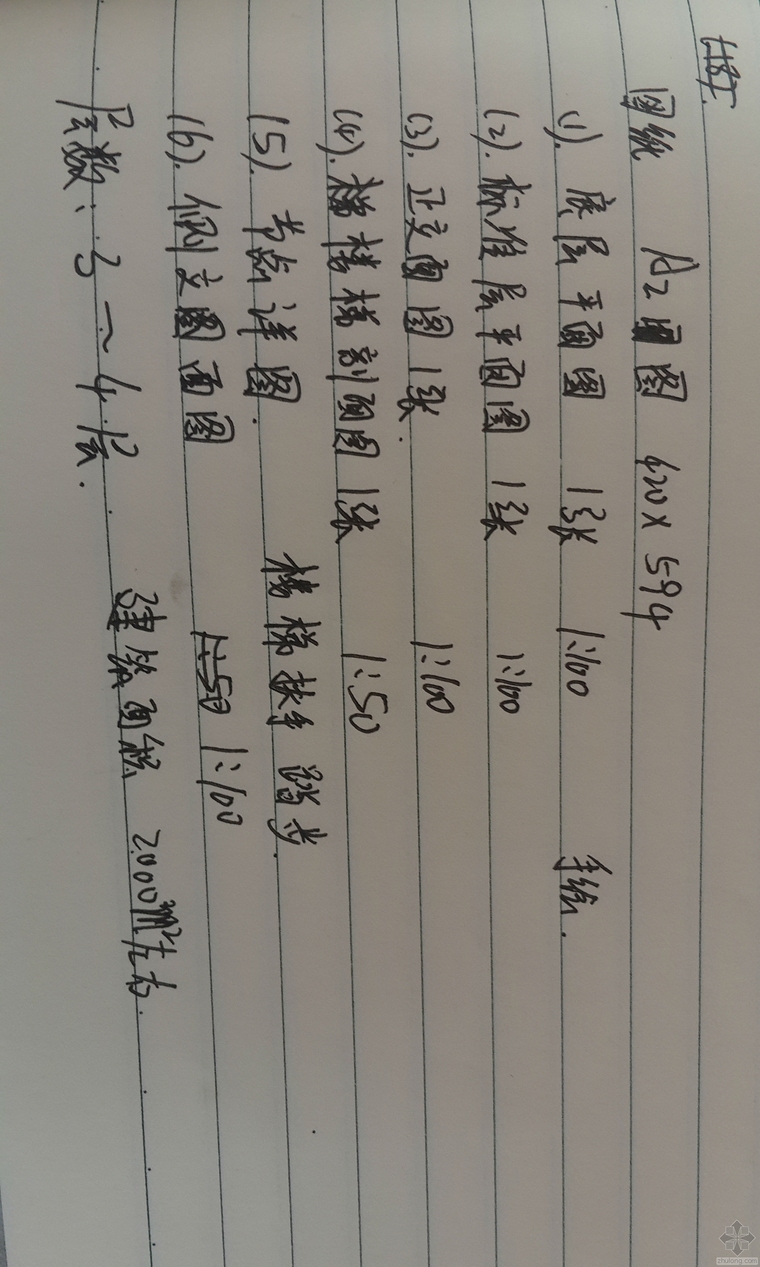 图纸 A2图 420×594
(1). 底层平面图 1张 1:100 手绘.
(2). 标准层平面图 1张 1:100
(3). 正立面图 1张. 1:100
(4). 楼梯剖面图 1张 1:50
(5). 节点详图. 楼梯扶手 踏步.
(6). 侧立面图 1:50 1:100
层数: 3~4层. 建筑面积 2000m²左右.
zhulong.com